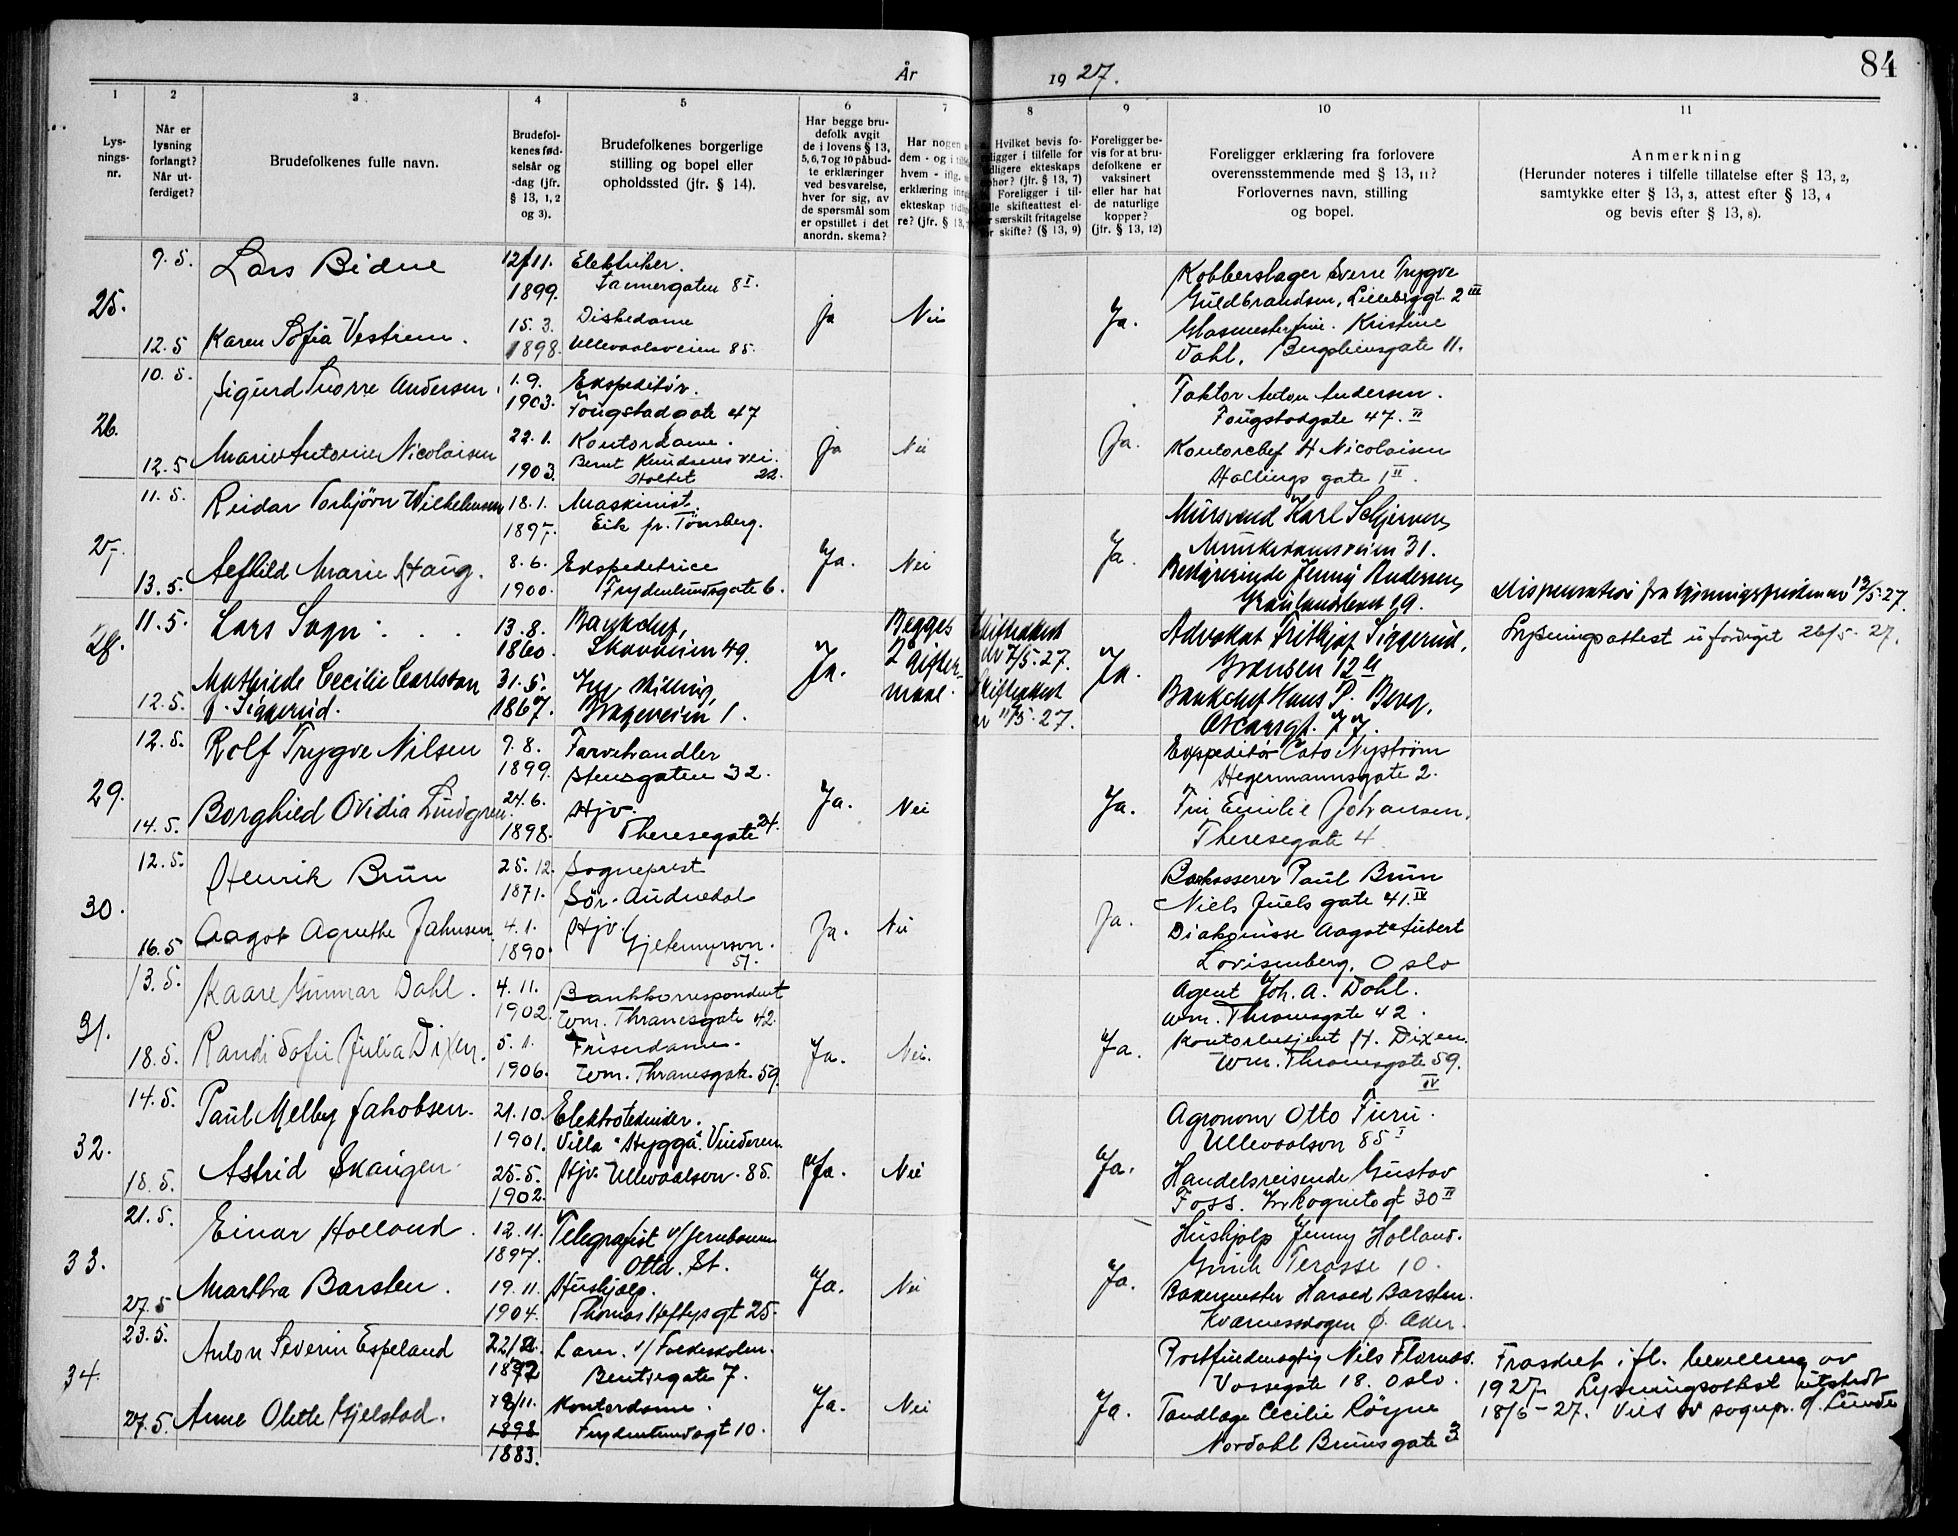 84
År 1927.
1 2 3 4 5 6 7 8 9 10 11
Lys-
nings-
nr.
Når er
lysning
forlangt?
Når ut-
ferdiget?
Brudefolkenes fulle navn.
Brudefol-
kenes fød-
selsår og
-dag (jfr.
§ 13, 1, 2
og 3).
Brudefolkenes borgerlige
stilling og bopel eller
opholdssted (jfr. § 14).
Har begge bru-
defolk avgit
de i lovens § 13,
5, 6, 7 og 10 påbud-
te erklæringer
ved besvarelse,
hver for sig, av
de spørsmål som
er opstillet i det
anordn. skema?
Har nogen
dem - og i
hvem - iflg.
erklæring
ekteskap
re? (jfr. § 13,
Hvilket bevis fo-
religger i tilfelle for
tidligere ekteskaps
ophør? (jfr. § 13, 7)
Foreligger i til-
felle skifteattest el-
ler særskilt fritagelse
for skifte? (§ 13, 9)
Foreligger be-
vis for at bru-
defolkene er
vaksinert
eller har hat
de naturlige
kopper?
(jfr. § 13, 12)
Foreligger erklæring fra forlovere
overensstemmende med § 13, 11?
Forlovernes navn, stilling
og bopel.
Anmerkning
(Herunder noteres i tilfelle tillatelse efter § 13, 2,
samtykke efter § 13, 3, attest efter § 13, 4
og bevis efter § 13, 8).
25.
9. 5. Lars Bidne 12/11. Elektriker.
1899. Tannergaten 8 I.
15. 3. Diskedame
12. 5 Karen Sofia Vestrem. 1898. Ullevaalsveien 85.
ja Nei Ja.
Kobberslager Sverre Trygve
Guldbrandsen, Lilleb.gt. 2 III
Glasmesterfrue Kristine
Dahl, Bergsliensgate 11.
26.
10. 5. Sigurd Snorre Andersen. 1. 9. Ekspeditør.
1903. Fougstadgate 47
22. 1. Kontordame.
12. 5 Marie Antonie Nicolaisen 1903. Bernt Knudsens vei.
Holtet 22.
ja Nei Ja.
Faktor Anton Andersen.
Fougstadgate 47. II
Kontorchef H Nicolaisen
Hallings gate 1 II.
27.
11. 5. Reidar Torbjørn Wilhelmsen 18. 1. Maskinist.
1897. Eik pr. Tønsberg.
8. 6. Ekspeditrice
13. 5. Alfhild Marie Haug. 1900. Frydenlundsgate 6.
Ja. Nei Ja.
Mursvend Karl Schjerven,
Munkedamsveien 31.
Bestyrerinde Jenny Andersen,
Grønlandsleret 19.
Dispensation fra lysningsfristen av 13/5. 27.
28.
11. 5. Lars Sogn. 13. 8. Bankchef,
1860. Skovveien 49.
Mathilde Cecilie Carlsson 31. 5. Ing. stilling,
12. 5. f. Siggerud. 1867. Drageveien 1.
Ja. Begges
2 gifter-
maal.
Skifteattest
av 7/5. 27.
Skifteattest
av 11/5. 27.
Ja.
Advokat Frithjof Siggerud,
Grensen 12
Bankchef Hans P. Berg,
Oscarsgt. 77.
Lysningsattest utferdiget 26/5. 27.
29.
12. 5. Rolf Trygve Nilsen 9. 8. Farvehandler
1899. Stensgaten 32.
24. 6. Hjv.
14. 5. Borghild Ovidia Lindgren. 1898. Theresegate 24.
Ja. Nei Ja.
Expeditør Cato Nystrøm
Hegermannsgate 2.
Fru Emilie Johansen.
Theresegate 4.
30.
12. 5. Henrik Brun 25. 12. Sogneprest
1871. Sør-Audnedal
4. 1. Hjv.
16. 5 Aagot Agnethe Jahnsen 1890. Gjetemyrsvn.
51.
Ja. Nei Ja.
Bokasserer Paul Brun
Niels Juels gate 41. IV
Diakonisse Aagot Aubert
Lovisenberg, Oslo
31.
13. 5. Kaare Gunnar Dahl. 4. 11. Bankkorrespondent
1902. Wm. Thranesgate 42.
5. 1. Friserdame.
18. 5. Randi Sofie Julia Dixen. 1906. Wm. Thranesgate. 59.
Ja. Nei. Ja.
Agent Joh. A. Dahl.
Wm. Thranesgate 42.
Kontorbetjent H. Dixen.
Wm. Thranesgate 59.
IV
32.
14. 5. Paul Melby Jakobsen. 21. 10. Elektrotekniker.
1901. Villa "Hygga". Vinderen
25. 5. Hjv. Ullevaalsvn. 85.
18. 5. Astrid Skaugen. 1902.
Ja. Nei Ja.
Agronom Otto Furu.
Ullevaalsvn 85 I
Handelsreisende Gustav
Foss. Inkognitogt 30 II
33.
21. 5. Einar Holland. 12. 11. Telegrafist v/Jernbanen
1897. Otta. St.
19. 11. Hushjælp.
27. 5 Martha Barsten. 1904. Thomas Heftysgt 25.
Ja. Nei Ja.
Hushjelp Jenny Holland.
Ginik Terasse 10.
Bakermester Harald Barsten.
Kværnesskogen Ø. Aker.
34.
23. 5. Anton Severin Espeland 22/2. Lærer. v/ Folkeskolen.
1872 Bentsegate 7.
18/11. Kontordame.
27. 5. Anne Olette Gjelstad. 1898 Frydenlundsgt 10.
1883.
Ja. Nei Ja.
Postfuldmægtig Nils Flornes.
Vossegate 18. Oslo.
Tandlæge Cecilie Røyne
Nordahl Brunsgate 3
Fraskilt ifl. bevilling av
1927. Lysningsattest utstedt
18/6-27. Viet av sognepr. J. Lunde